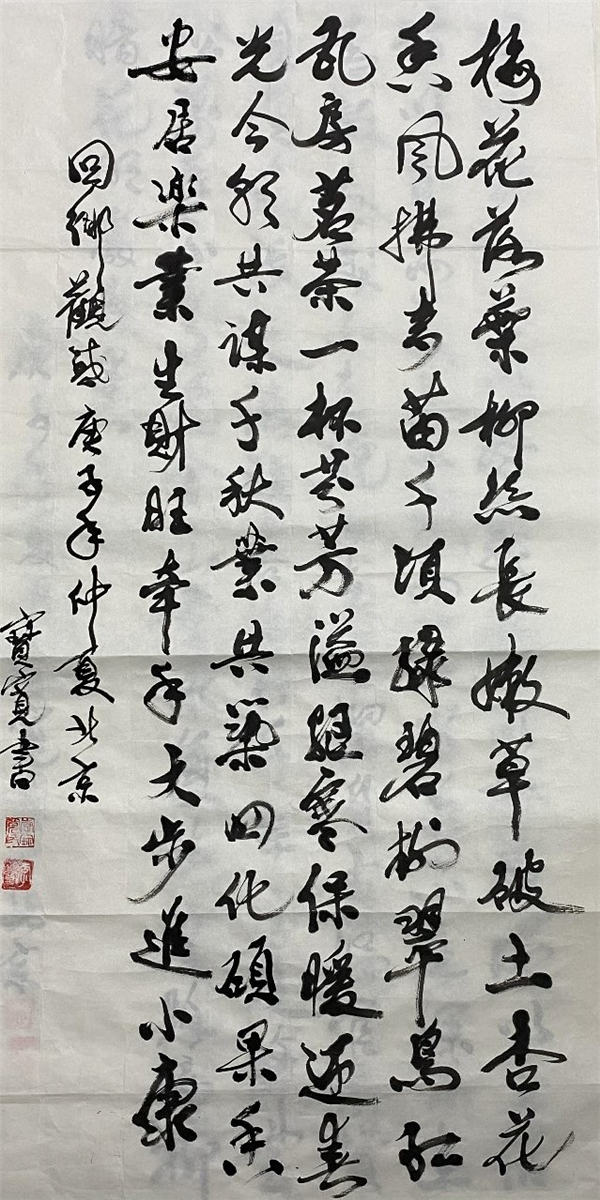 梅花落葉柳絲長嫩草破土杏花
香風拂苗千頃緑碧樹翠鳥紅
瓦房茗茶一杯芬芳溢驅寒保暖迎春
光今朝共謀千秋業共築四化碩果香
安居楽業生財旺牽手大步進小康
回鄉觀感庚子年仲夏北京
寶寬書